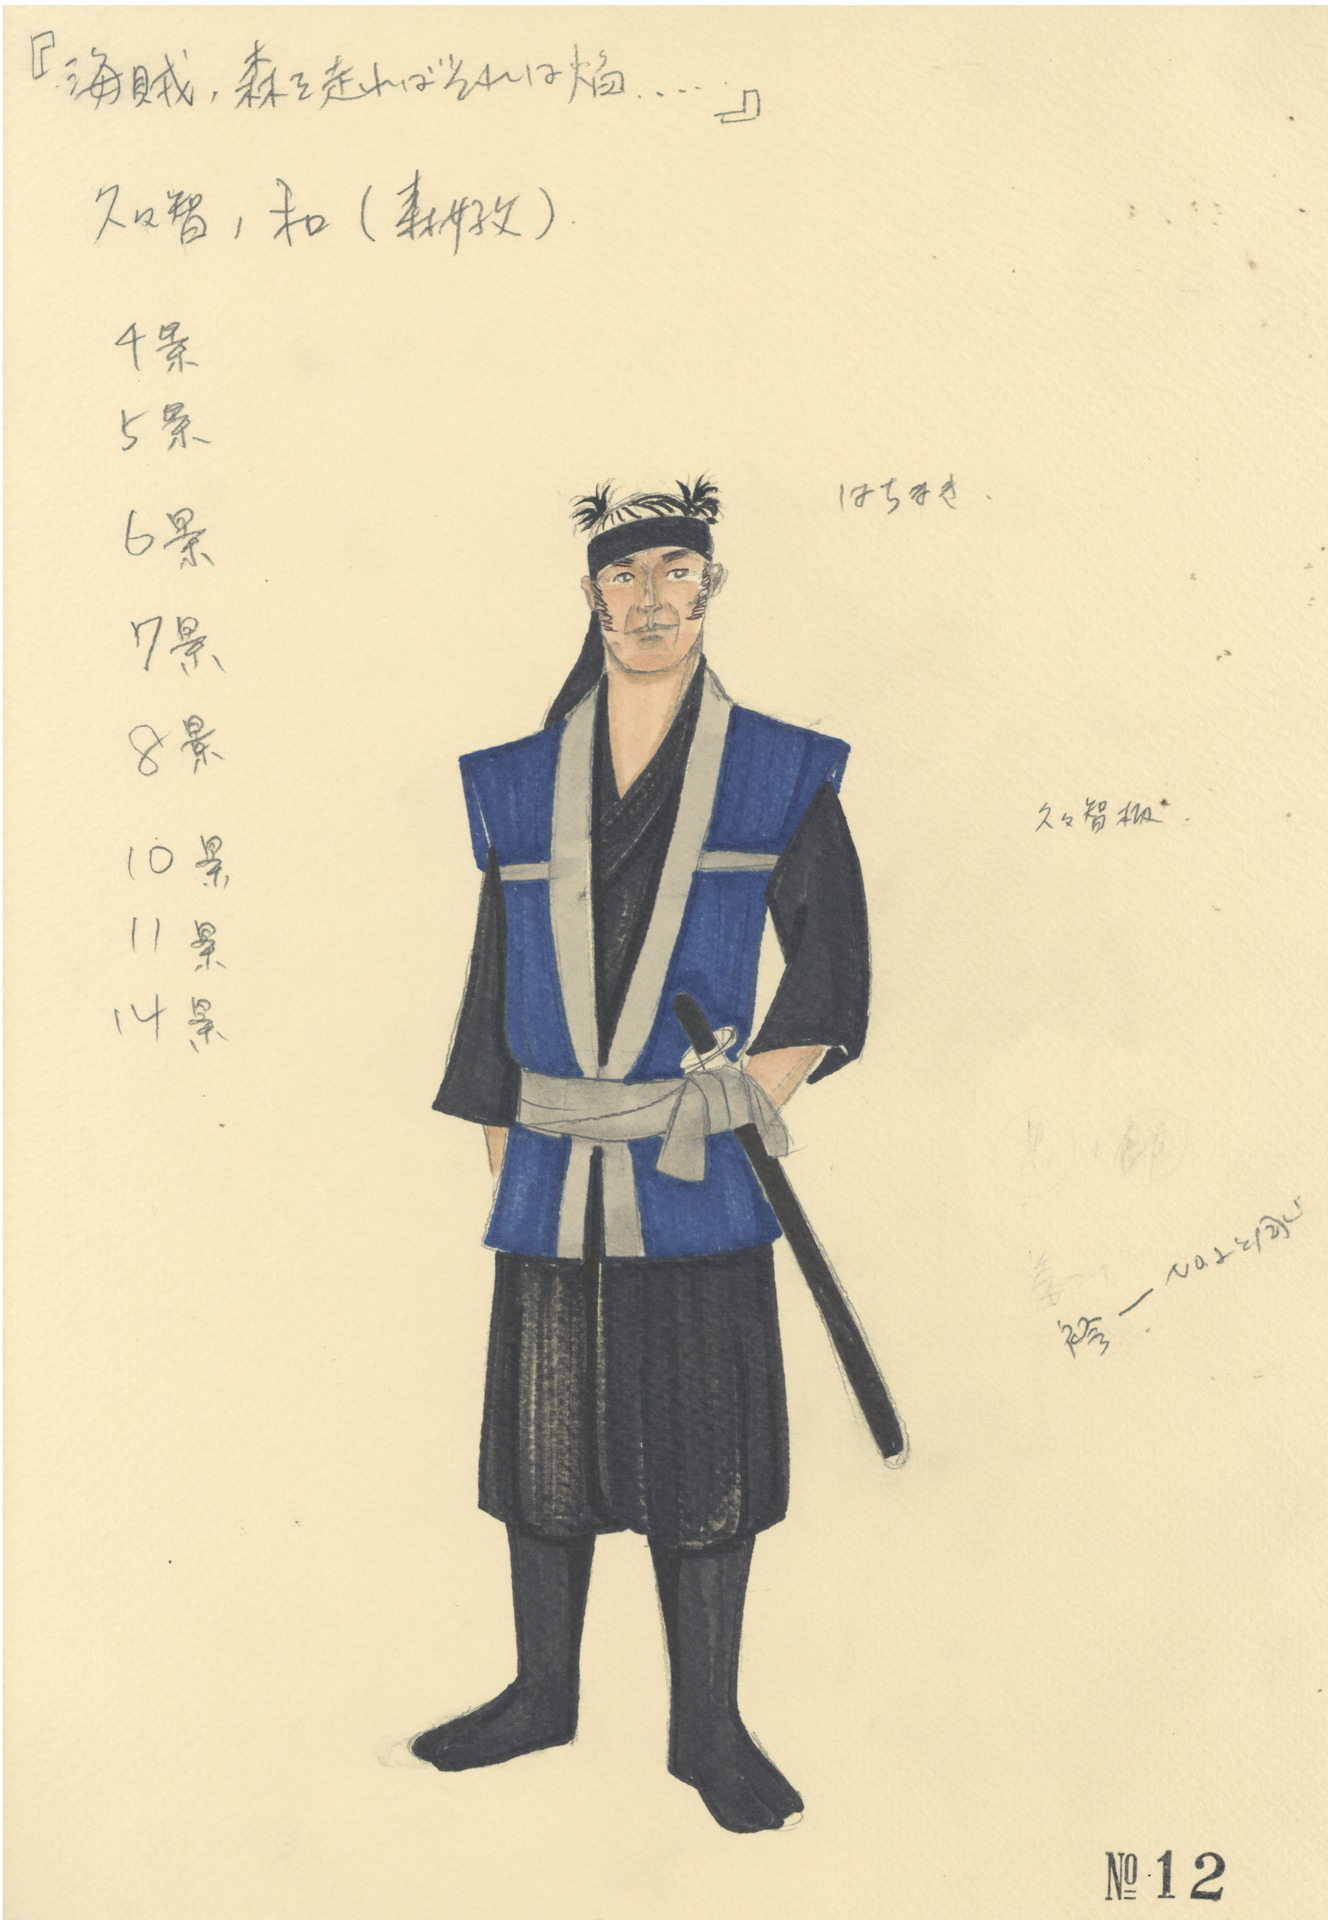 『海賊,森を走ればそれは焔....』
久々智,和(森好文)
4景
5景
6景
7景
8景
10景
11景
14景
はちまき.
久々智
袴ー
と同じ
№12